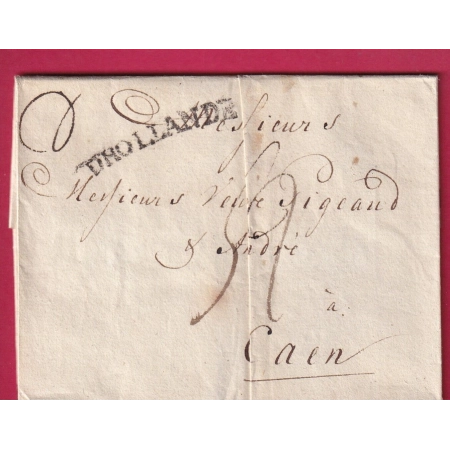 D'HOLLANDE
Messieurs
Messieurs Veuve Pigeaud
& André
à
Caen